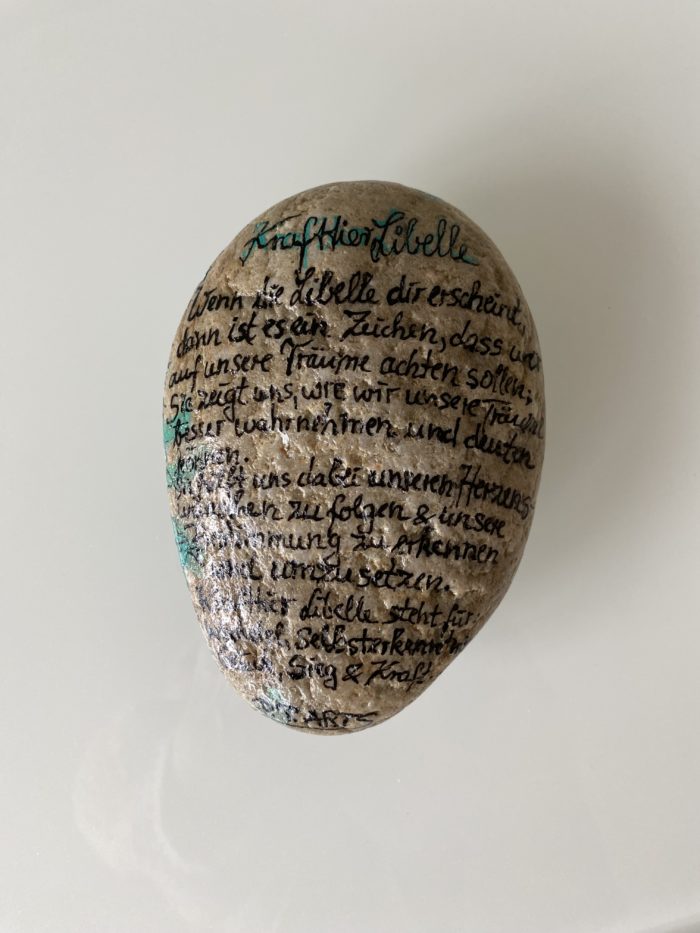 Krafttier Libelle
Wenn die Libelle dir erscheint,
dann ist es ein Zeichen, dass wir
auf unsere Träume achten sollen.
Sie zeigt uns, wie wir unsere Träume
besser wahrnehmen und deuten
können.
hilft uns dabei unseren Herzens-
wünschen zu folgen & unsere
Bestimmung zu erkennen
und umzusetzen.
Krafttier Libelle steht für:
Selbsterkenntnis
Sieg & Kraft.
ARTS